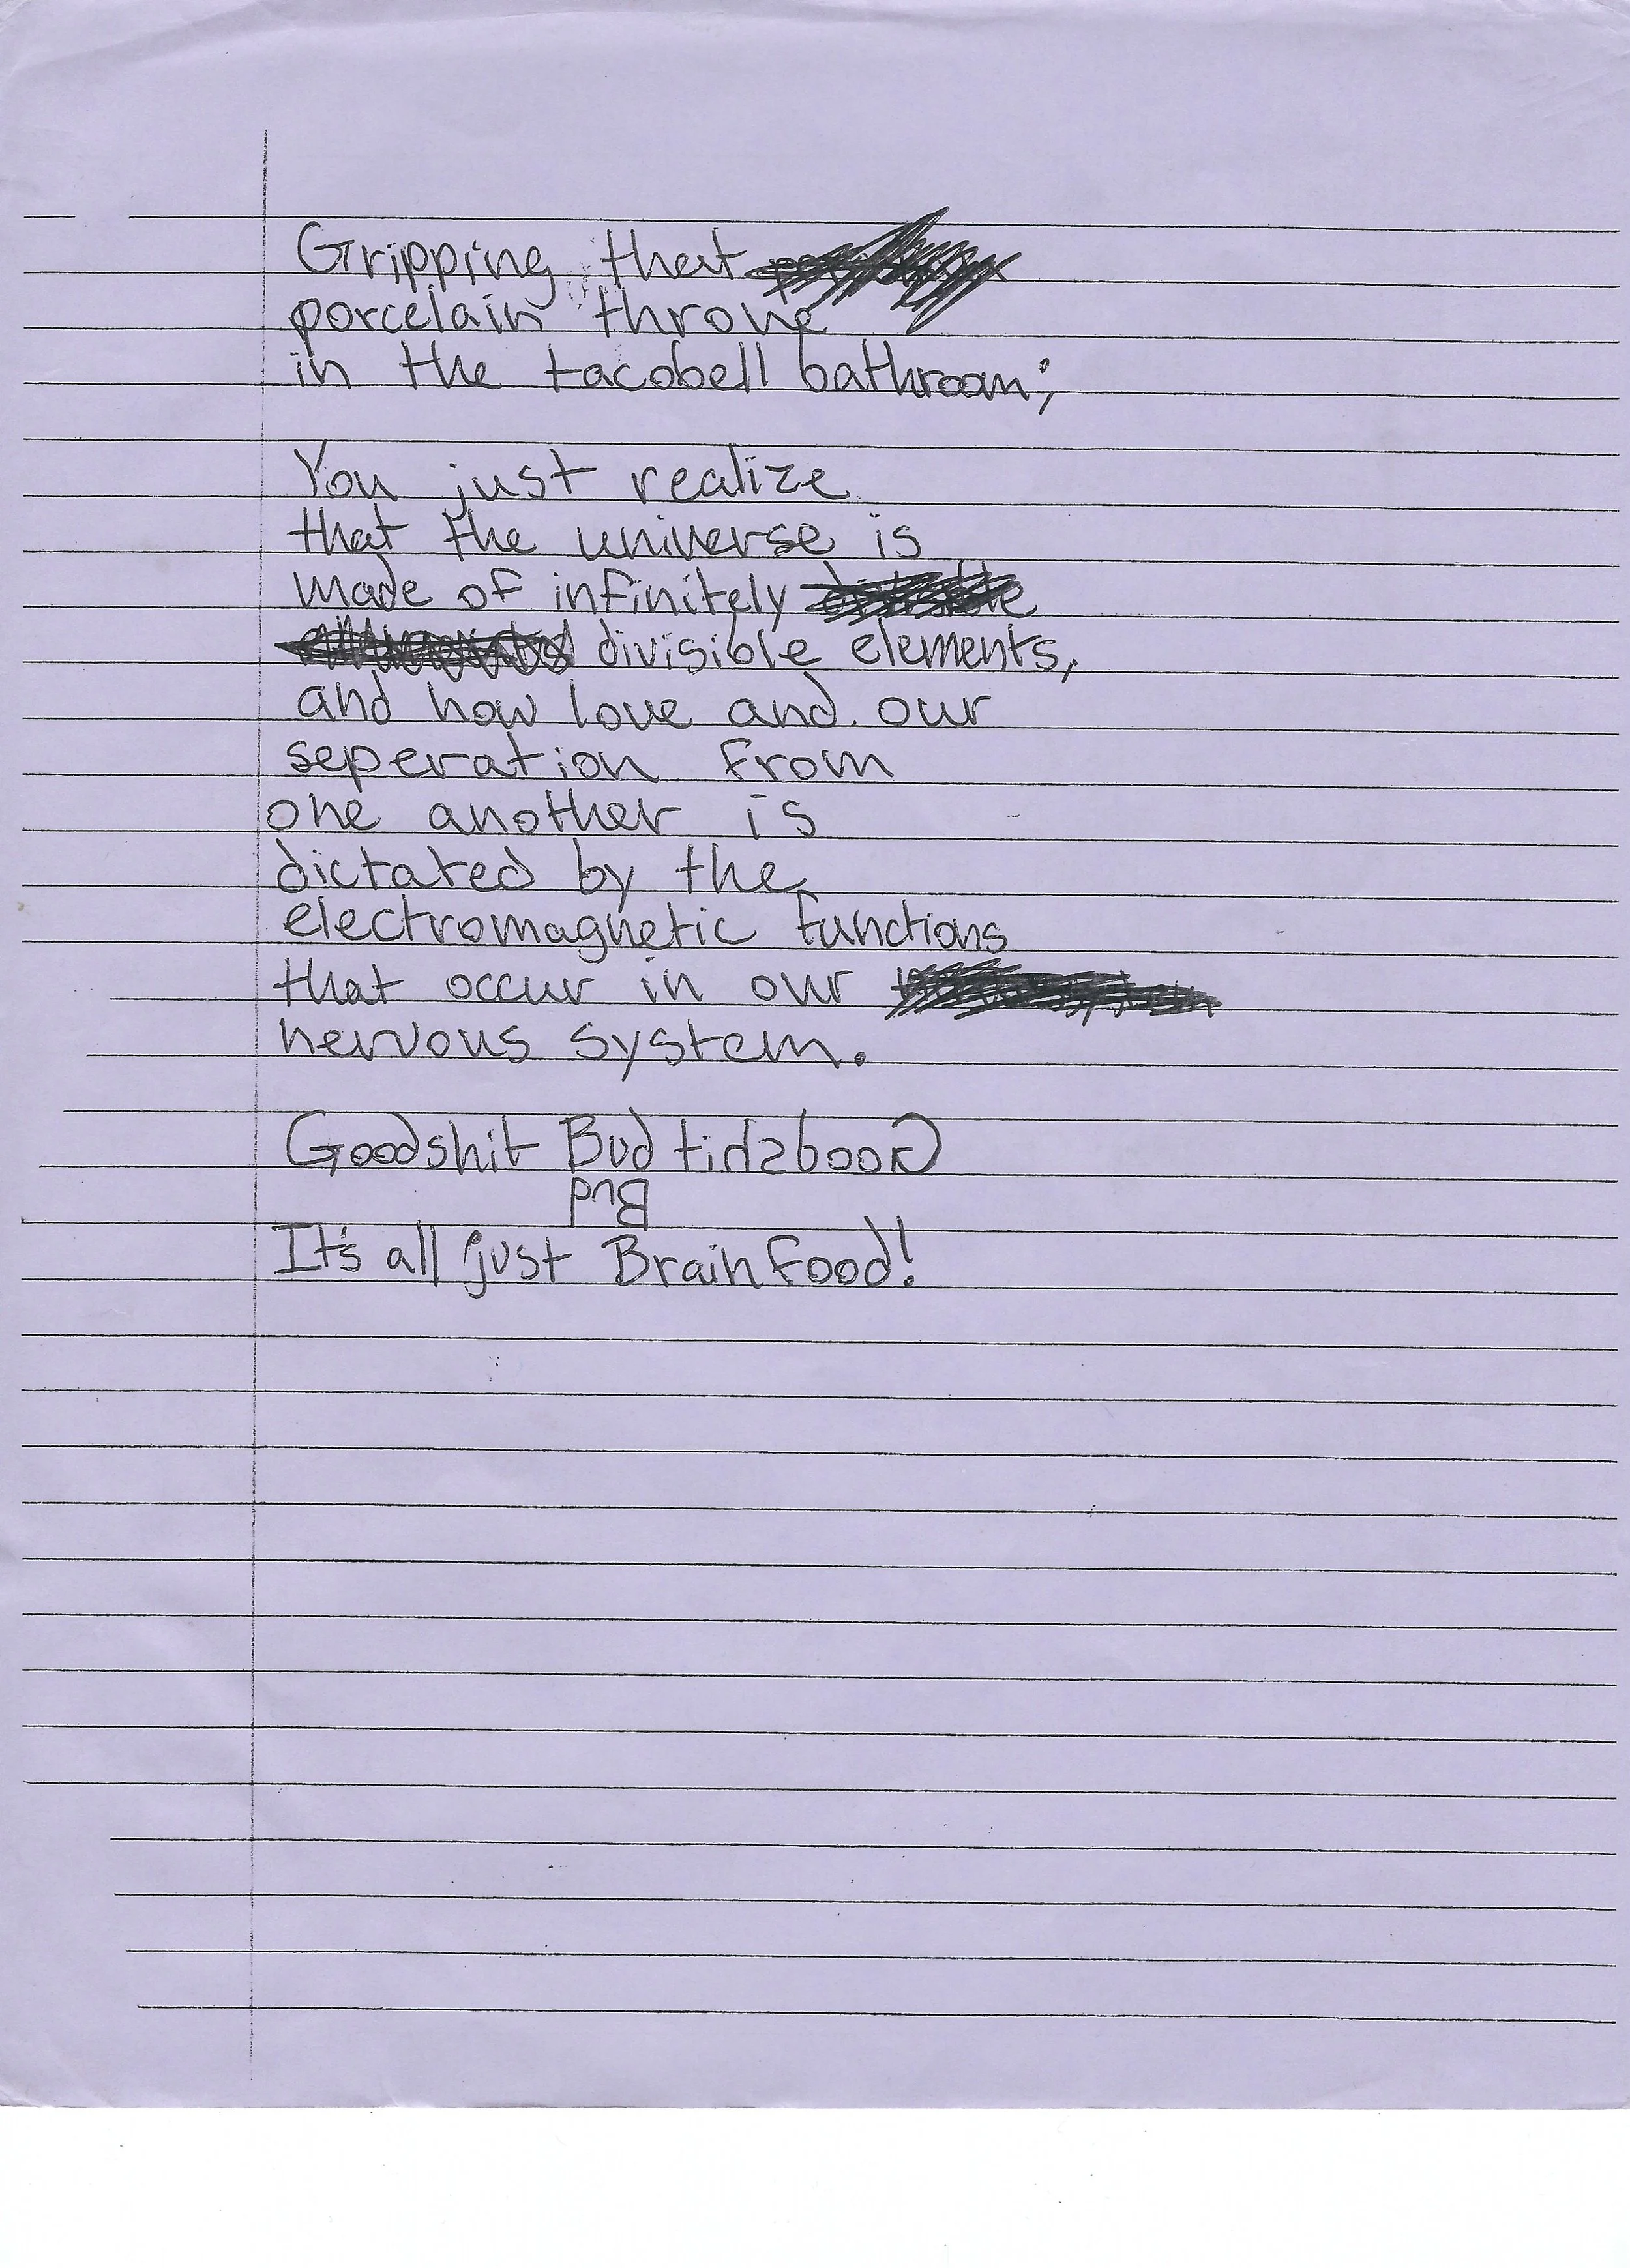 Gripping that
porcelain throne
in the tacobell bathroom;
You just realize
that the universe is
made of infinitely
divisible elements,
and how love and our
seperation from
one another is
dictated by the
electromagnetic functions
that occur in our
nervous system.
Goodshit Bud tihsdooG
Bud
It's all just Brain food!